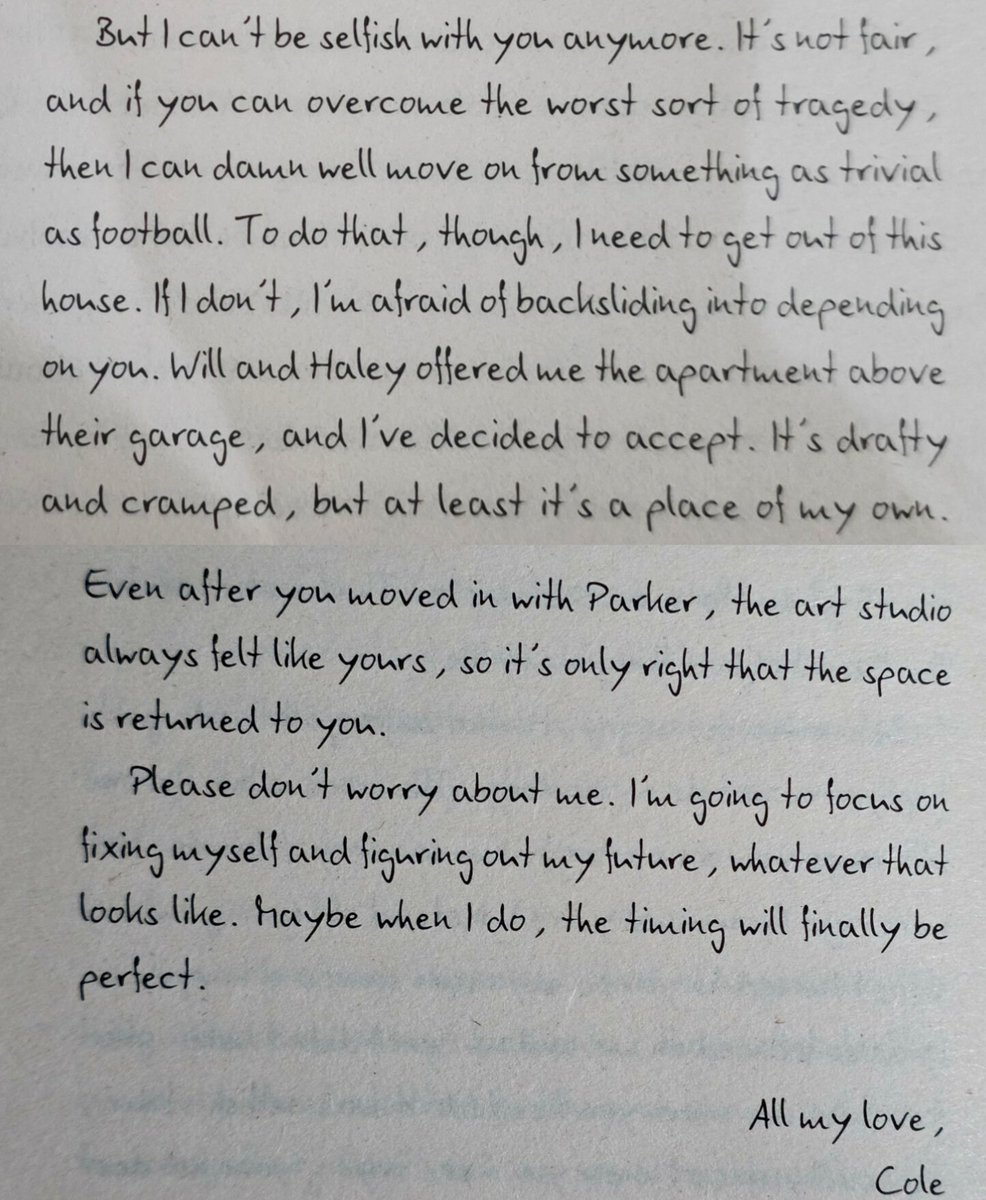 But I can't be selfish with you anymore. It's not fair,
and if you can overcome the worst sort of tragedy,
then I can damn well move on from something as trivial
as football. To do that, though, I need to get out of this
house. If I don't, I'm afraid of backsliding into depending
on you. Will and Haley offered me the apartment above
their garage, and I've decided to accept. It's drafty
and cramped, but at least it's a place of my own.
Even after you moved in with Parker, the art studio
always felt like yours, so it's only right that the space
is returned to you.
Please don't worry about me. I'm going to focus on
fixing myself and figuring out my future, whatever that
looks like. Maybe when I do, the timing will finally be
perfect.
All my love,
Cole